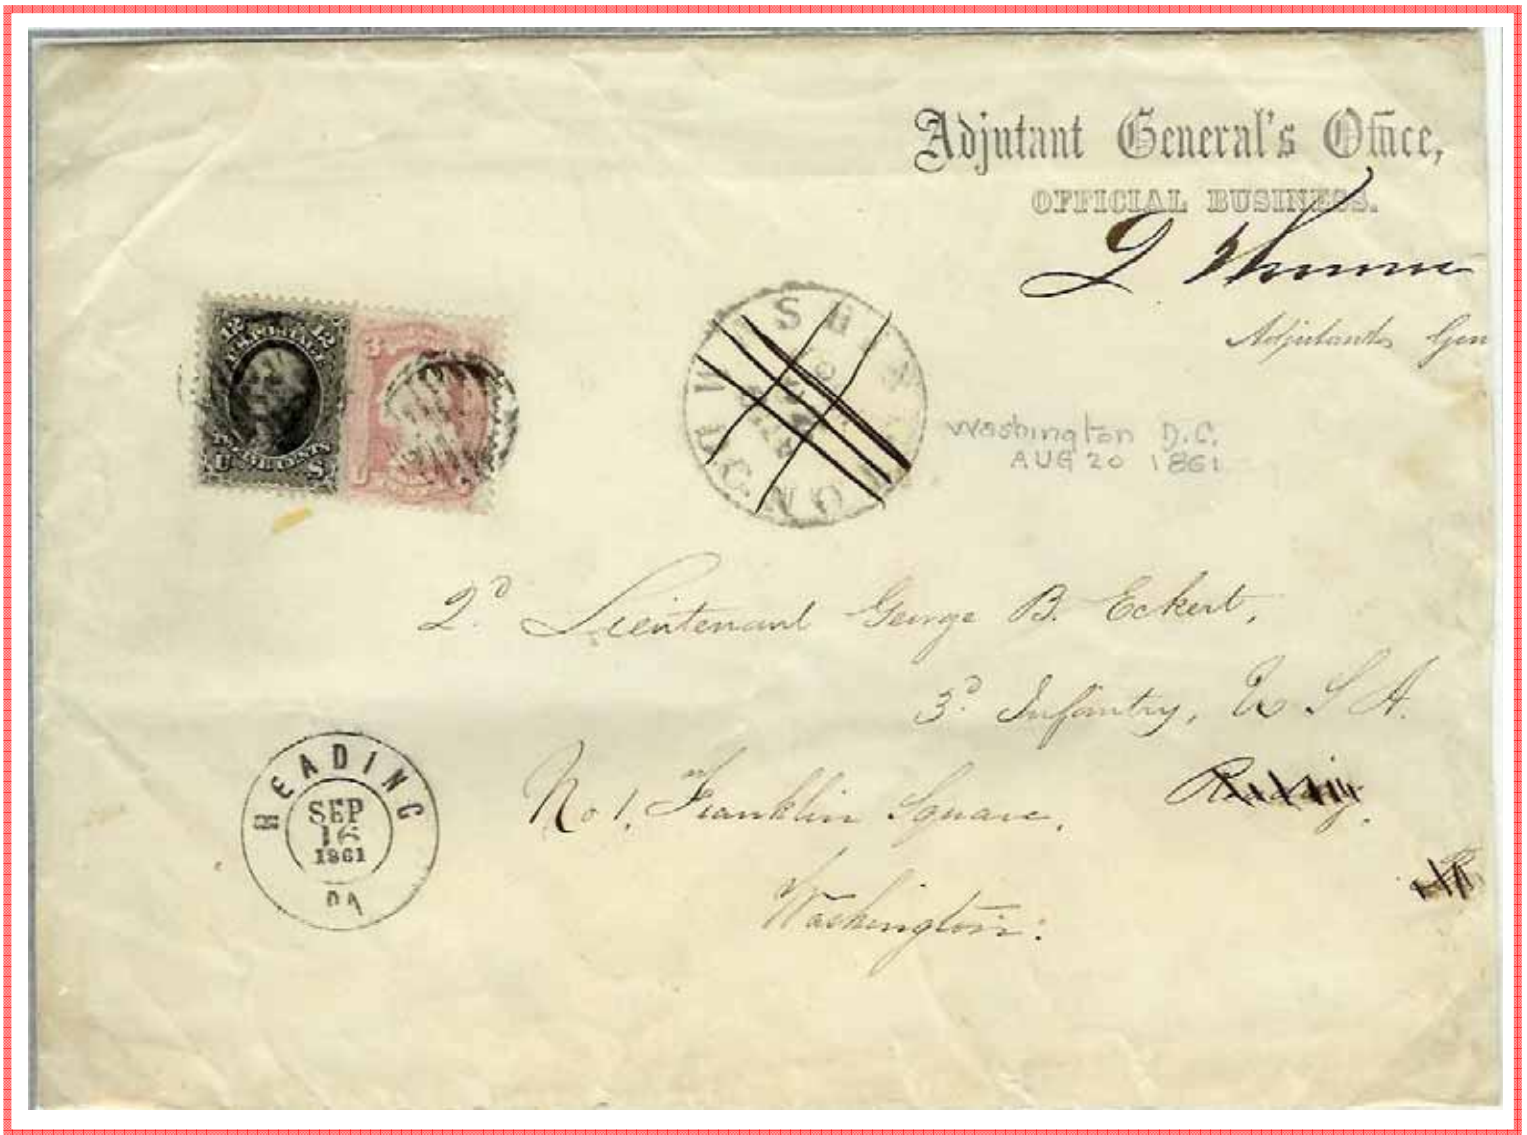 Adjutant General's Office,
OFFICIAL BUSINESS.
Adjutant Gen
12 12
U.S. POSTAGE
TWELVE CENTS
U S
3
U
WASHINGTON
D.C.
Washington D.C.
AUG 20 1861
2d. Lieutenant George B. Eckert,
3d Infantry, U S A.
No 1. Franklin Square.
Washington:
READING
SEP
16
1861
PA